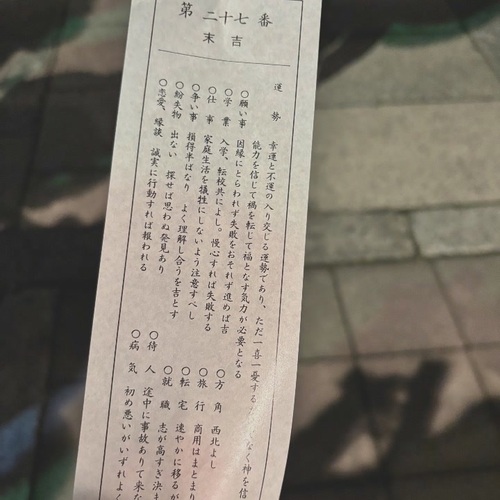 第二十七番
末吉
運勢
幸運と不運の入り交じる運勢であり、ただ一喜一憂する
なく神を信
能力を信じて禍を転じて福となす気力が必要となる
○願い事 因縁にとらわれず失敗をおそれず進めば吉
○学業 入学、転校共によし。慢心すれば失敗する
○仕事 家庭生活を犠牲にしないよう注意すべし
○争い事 損得半ばなり よく理解し合うを吉とす
○紛失物 出ない 探せば思わぬ発見あり
○恋愛、縁談 誠実に行動すれば報われる
○方角 西北よし
○旅行 商用はまとまり
○転宅 速やかに移るが
○就職 志が高すぎ決ま
○待人 途中に事故ありて来な
○病気 初め悪いがいずれよく